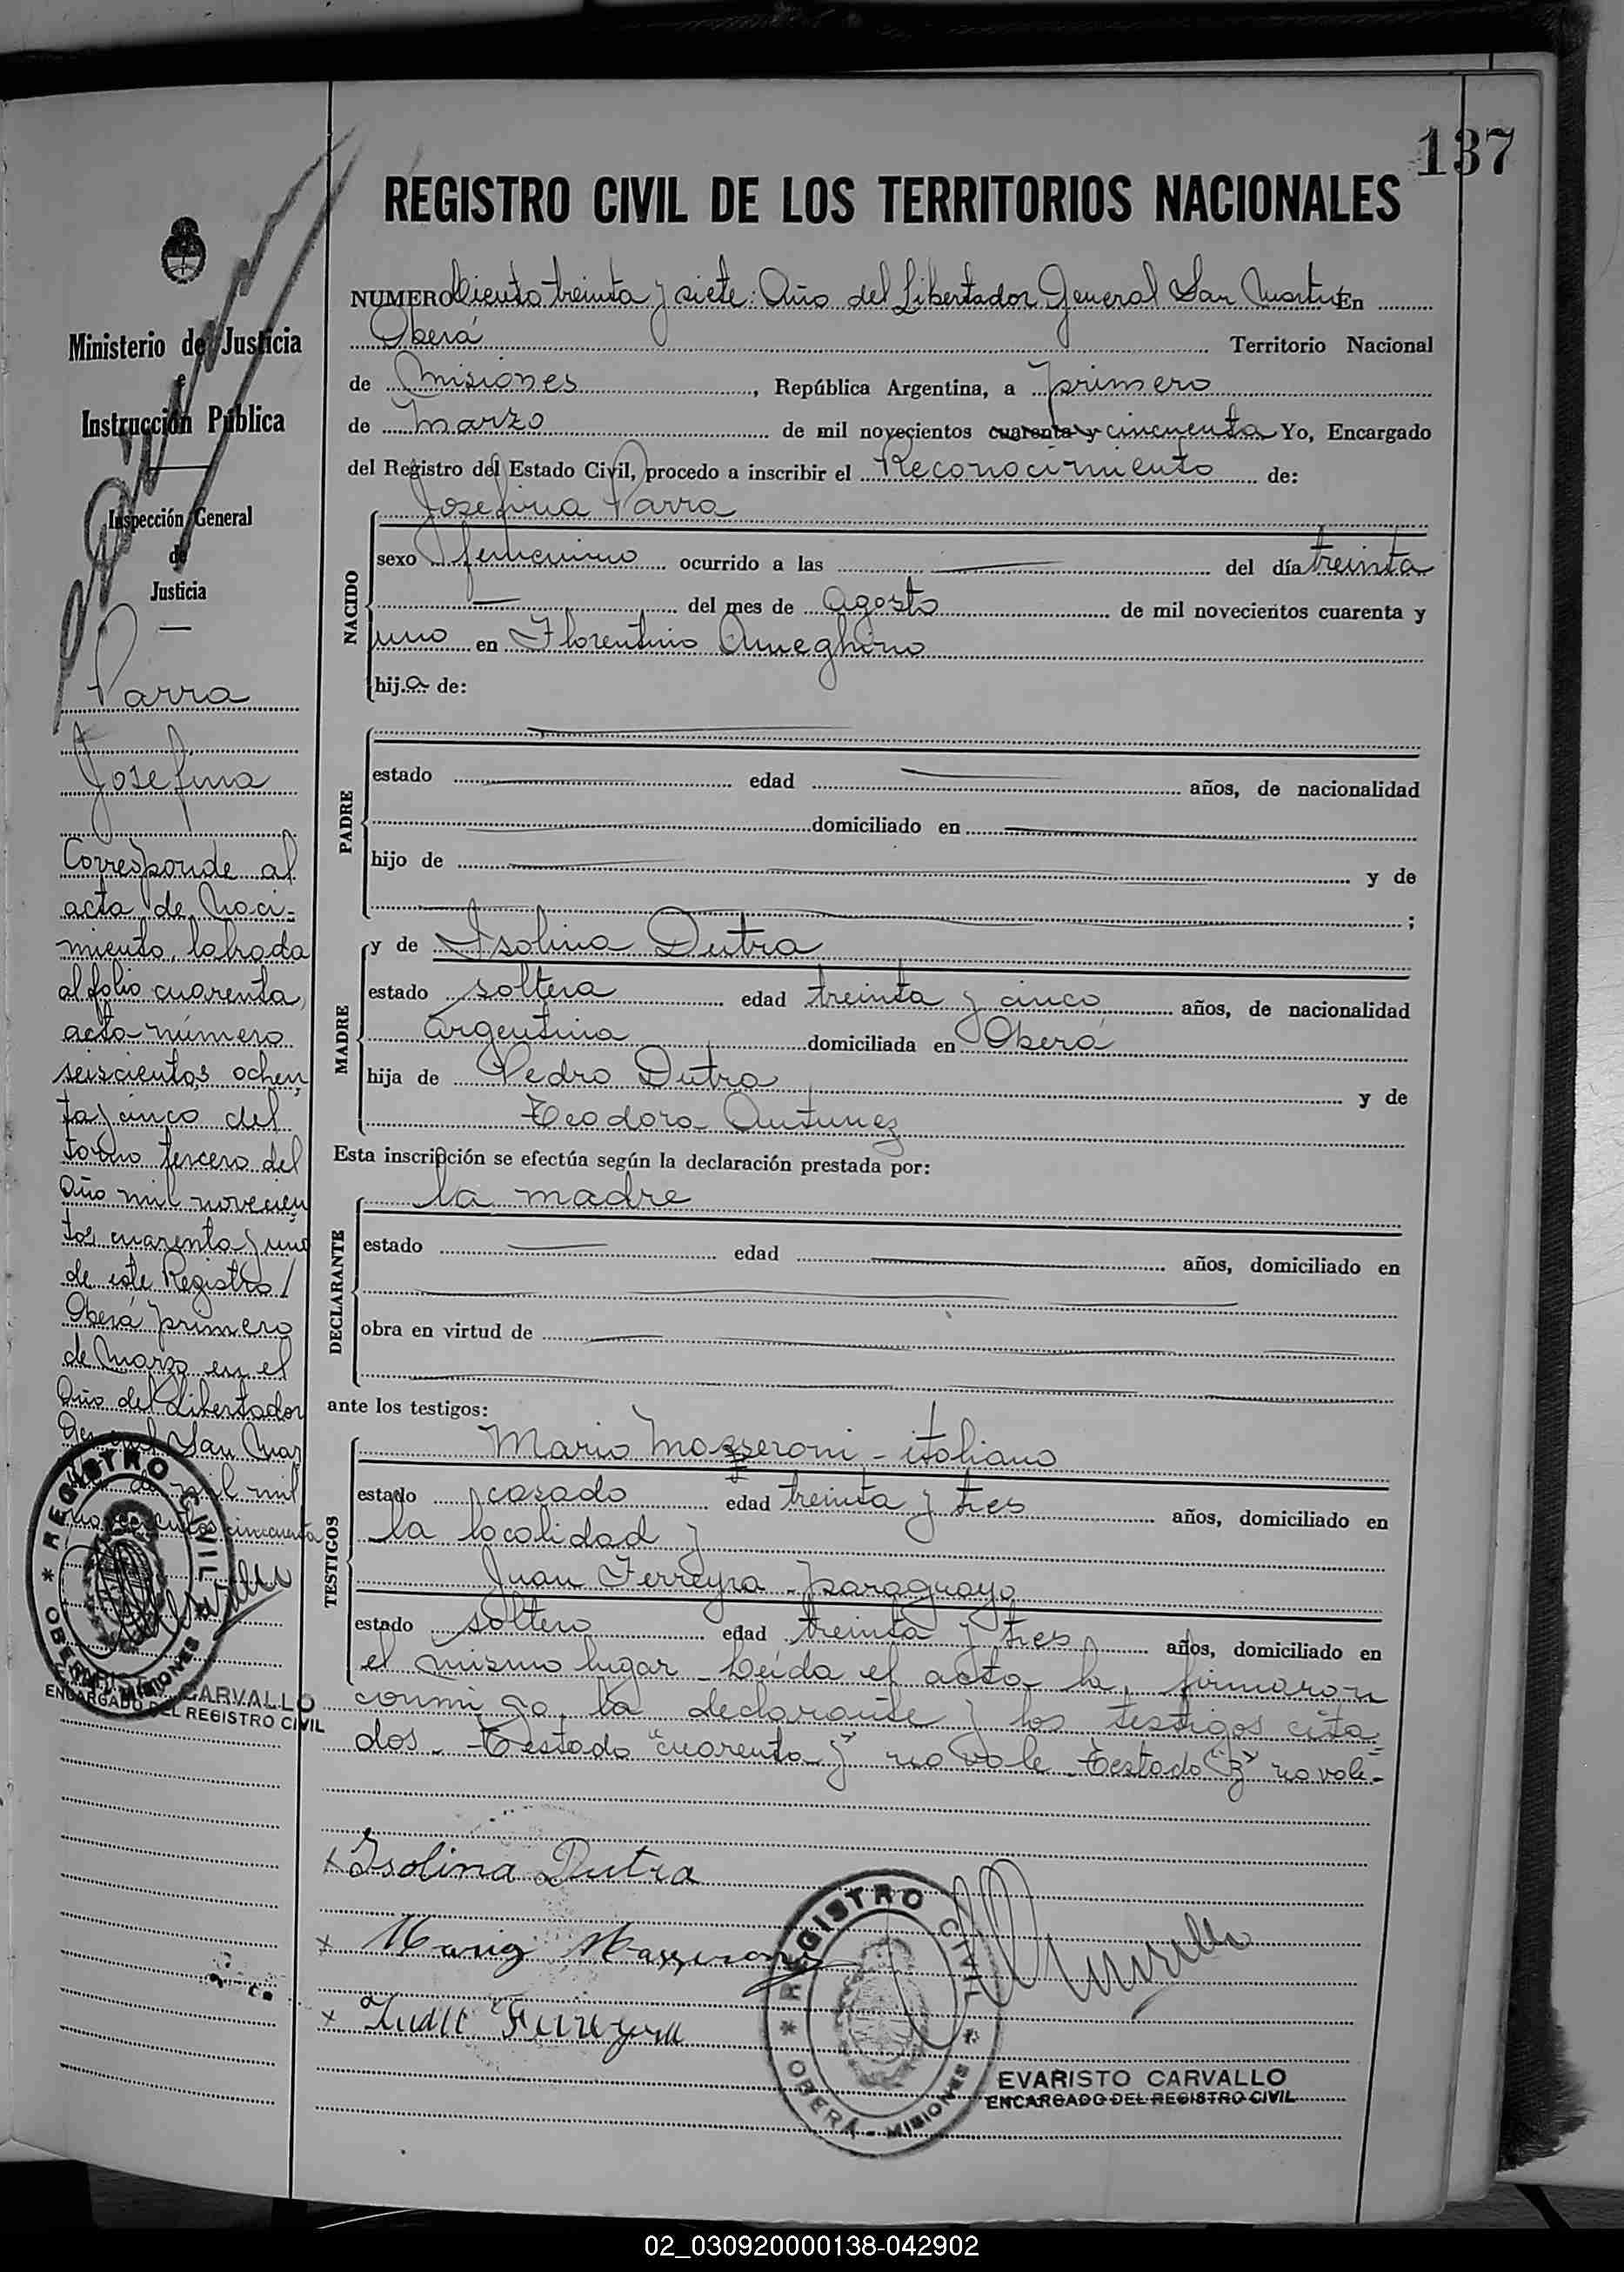 137
REGISTRO CIVIL DE LOS TERRITORIOS NACIONALES
NUMERO Ciento treinta y siete. Año del Libertador General San Martín En
Oberá Territorio Nacional
de Misiones, República Argentina, a primero
de marzo de mil novecientos cuarenta y cincuenta Yo, Encargado
del Registro del Estado Civil, procedo a inscribir el Reconocimiento de:
NACIDO
Josefina Parra
sexo femenino ocurrido a las del día treinta
del mes de Agosto de mil novecientos cuarenta y
uno en Florentino Ameghino
hija de:
PADRE
estado edad años, de nacionalidad
domiciliado en
hijo de y de
;
MADRE
y de Isolina Dutra
estado soltera edad treinta y cinco años, de nacionalidad
argentina domiciliada en Oberá
hija de Pedro Dutra y de
Teodora Antunez
Esta inscripción se efectúa según la declaración prestada por:
DECLARANTE
la madre
estado edad años, domiciliado en
obra en virtud de
ante los testigos:
TESTIGOS
Mario Mazseroni - italiano
estado casado edad treinta y tres años, domiciliado en
la localidad y
Juan Ferreyra - paraguayo
estado soltero edad treinta y tres años, domiciliado en
el mismo lugar - Leída el acta la firmaron
conmigo, la declarante y los testigos cita-
dos. Testado "cuarenta y" no vale. Testado "z" no vale-
x Isolina Dutra
x Mario Masseroni
x Juan Ferreyra
REGISTRO CIVIL
* OBERÁ - MISIONES *
EVARISTO CARVALLO
ENCARGADO DEL REGISTRO CIVIL
Ministerio de Justicia
e
Instrucción Pública
Inspección General
de
Justicia
Parra
Josefina
Corresponde al
acta de Naci-
miento, labrada
al folio cuarenta,
acta número
seiscientos ochen
ta y cinco del
tomo tercero del
Año mil novecien
tos cuarenta y uno
de este Registro/
Oberá primero
de Marzo en el
Año del Libertador
General San Mar
de mil
novecientos cincuenta
REGISTRO CIVIL
* OBERÁ - MISIONES *
CARVALLO
ENCARGADO DEL REGISTRO CIVIL
02_030920000138-042902